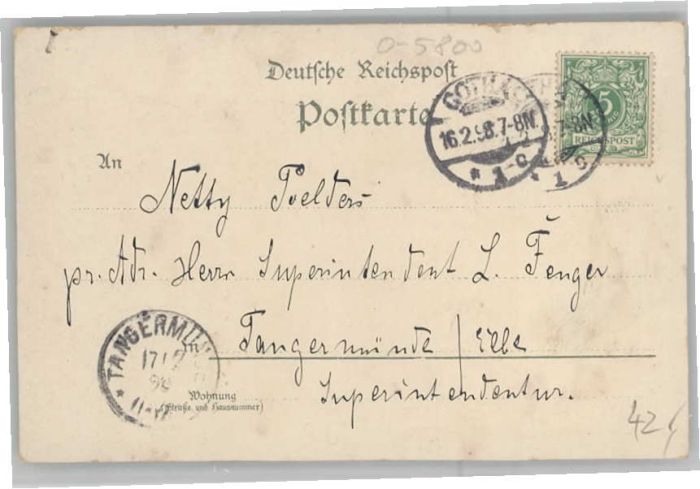 0-5800
Deutsche Reichspost
Postkarte
GOTHA
16.2.98.7-8N.
* 1 c
5
REICHSPOST
An
Netty
pr. Adr. Herrn Superintendent L. Fenger
in Tangermünde / Elbe
TANGERMÜN
17/2
98
Superintendentur.
Wohnung
(Straße und Hausnummer)
42